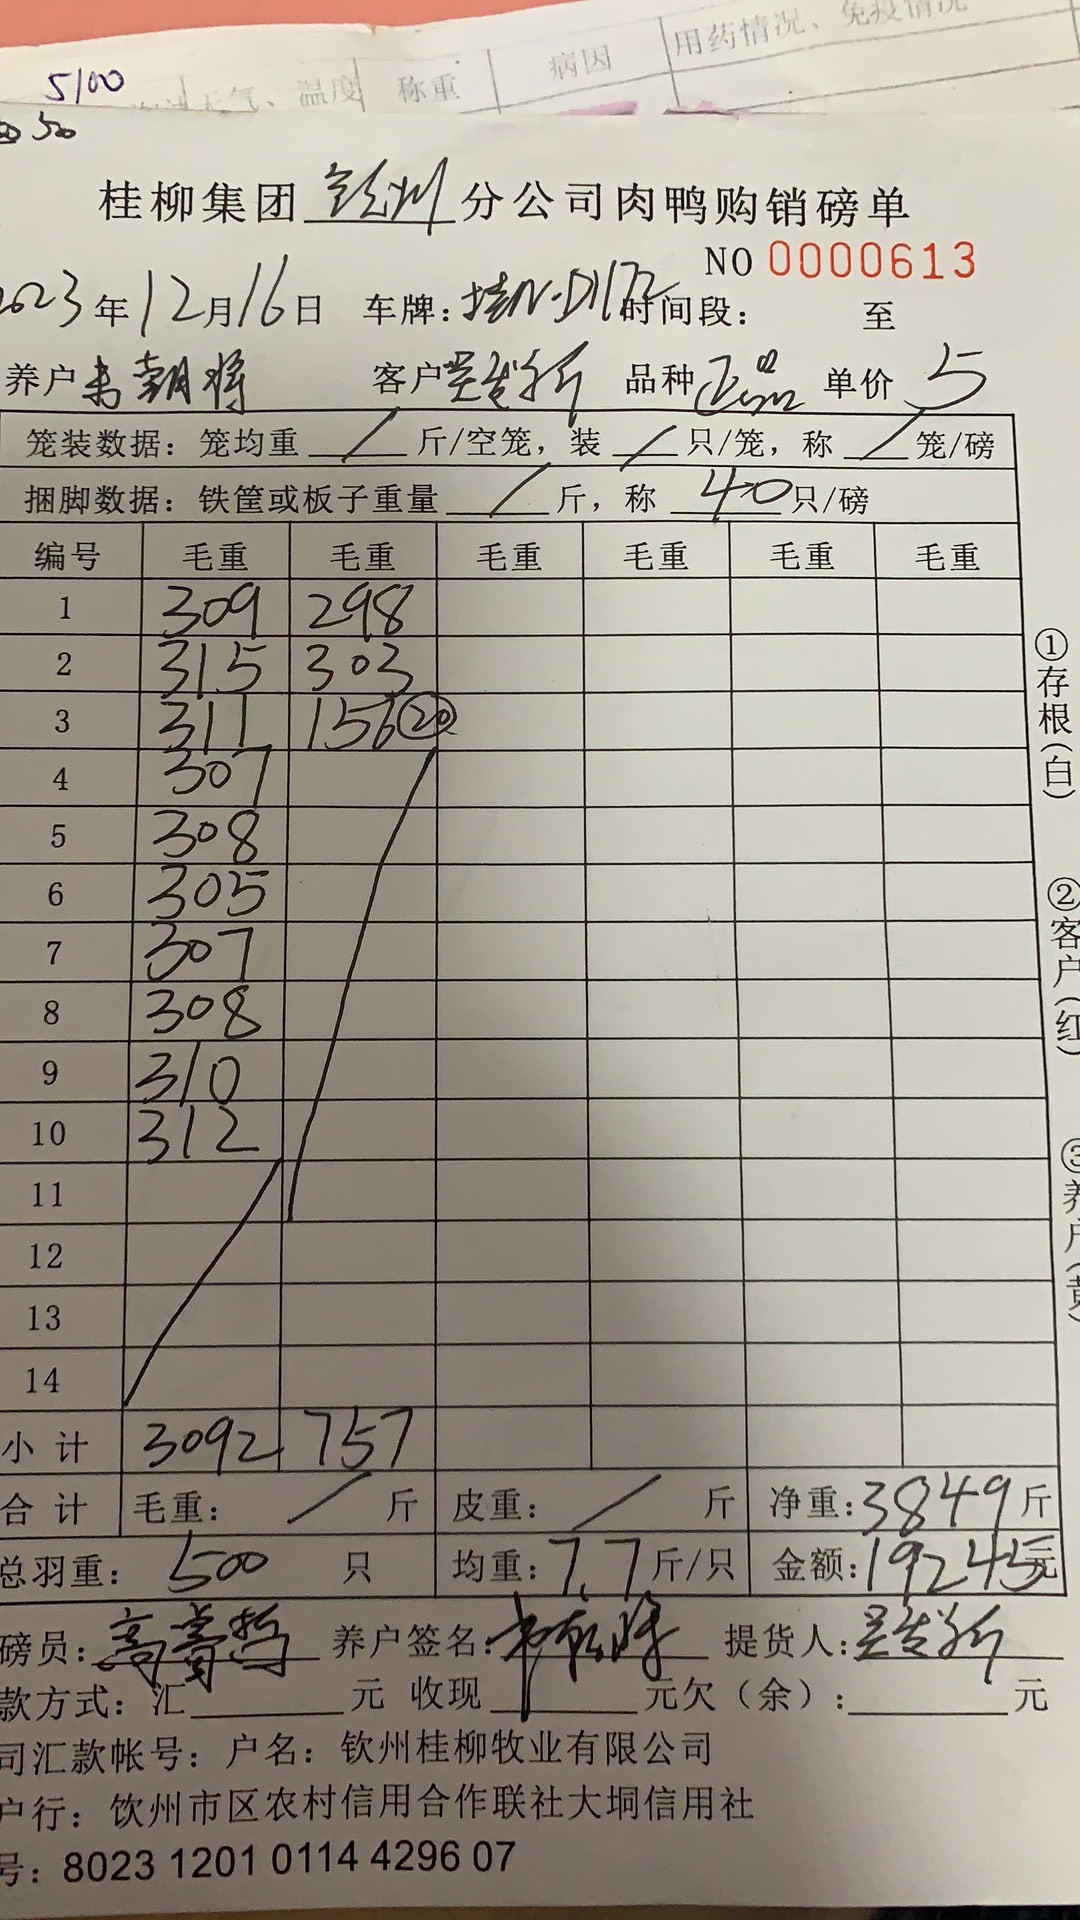 天气、温度 称重 病因 用药情况、免疫情况
5100
50
桂柳集团钦州分公司肉鸭购销磅单
NO 0000613
2023年12月16日 车牌: 时间段: 至
养户韦朝将 客户 品种正品 单价5
笼装数据: 笼均重/斤/空笼, 装/只/笼, 称/笼/磅
捆脚数据: 铁筐或板子重量/斤, 称40只/磅
编号 毛重 毛重 毛重 毛重 毛重 毛重
1 309 298
2 315 303
3 311 156⑳
4 307
5 308
6 305
7 307
8 308
9 310
10 312
11
12
13
14
小计 3092 757
合计 毛重: / 斤 皮重: / 斤 净重:3849斤
总羽重: 500 只 均重:7.7斤/只 金额:19245元
磅员: 养户签名: 提货人:
款方式: 汇 元 收现 元欠(余): 元
司汇款帐号: 户名: 钦州桂柳牧业有限公司
户行: 钦州市区农村信用合作联社大垌信用社
号: 8023 1201 0114 4296 07
①存根(白)
②客户(红)
③养户(黄)